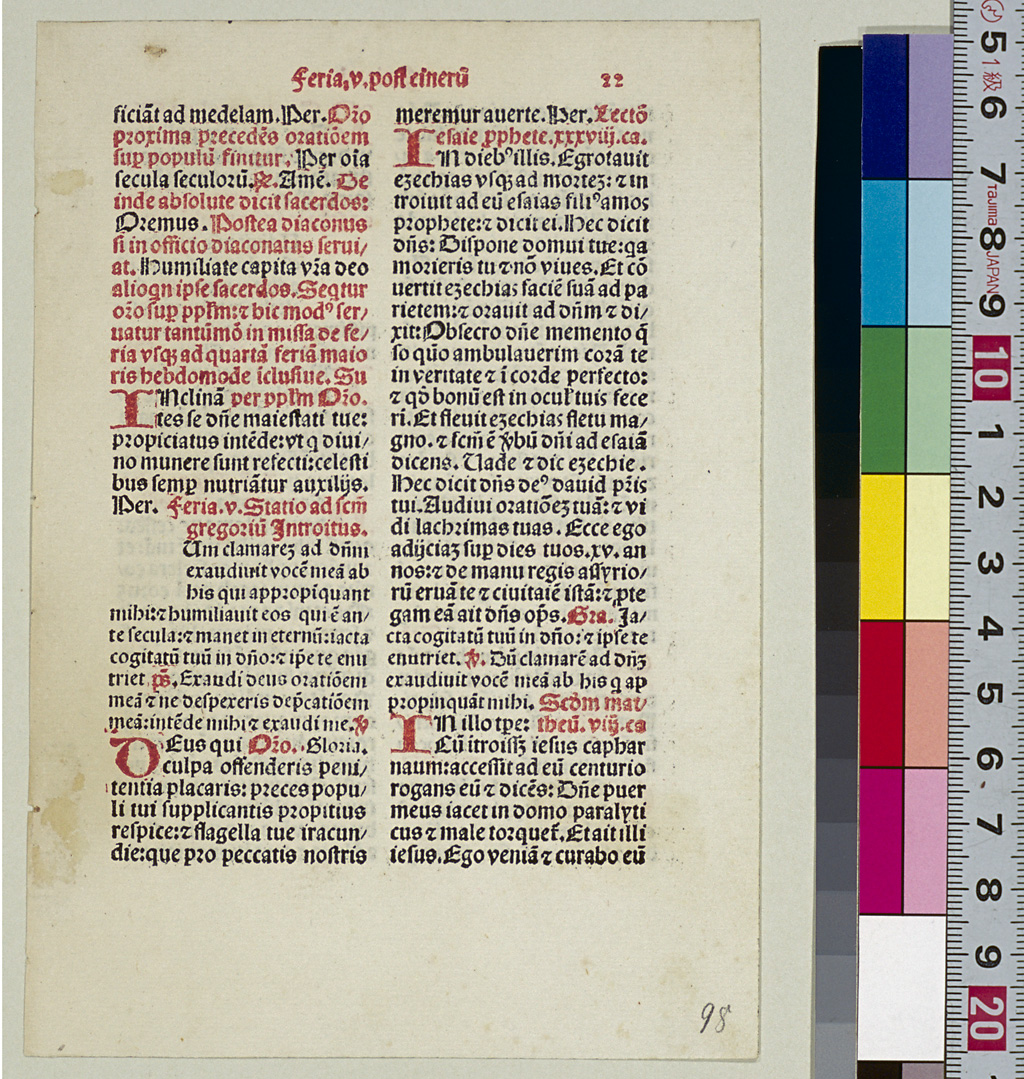 Feria.v.post cinerū 22
ficiāt ad medelam.Per.Oŕo
proxima precedēs oratiōem
suꝑ populū finitur. Per oīa
secula seculorū.℟.Amē. De
inde absolute dicit sacerdos:
Oremus. Postea diaconus
si in officio diaconatus serui/
at. Humiliate capita vŕa deo
alioqn ipse sacerdos.Seqtur
oŕo suꝑ pplm:⁊ hic modꝰ ser/
uatur tantūmō in missa de fe/
ria vsqꝫ ad quartā feriā maio
ris hebdomode īclusiue. Su
INclinā per pplm Oŕo.
tes se dn̄e maiestati tue:
propiciatus intēde:vt q diui/
no munere sunt refecti:celesti
bus semꝑ nutriātur auxilijs.
Per. Feria.v.Statio ad scm̄
gregoriū Introitus.
Um clamareꝫ ad dn̄m
exaudiuit vocē meā ab
his qui appropiquant
mihi:⁊ humiliauit eos qui ē an/
te secula:⁊ manet in eternū:iacta
cogitatū tuū in dn̄o:⁊ ip̄e te enu
triet.p̄s. Exaudi deus oratiōem
meā ⁊ ne despexeris dep̄catiōem
meā:intēde mihi ⁊ exaudi me.℣
DEus qui Oŕo. Gloria.
culpa offenderis peni/
tentia placaris: preces popu/
li tui supplicantis propitius
respice:⁊ flagella tue iracun/
die:que pro peccatis nostris
meremur auerte.Per.Lectō
esaie ꝓphete.xxxviij.ca.
IN diebꝰ illis. Egrotauit
eꝫechias vsqꝫ ad morteꝫ: ⁊ in
troiuit ad eū esaias filiꝰ amos
prophete:⁊ dicit ei.Hec dicit
dn̄s: Dispone domui tue:qa
morieris tu ⁊ nō viues. Et cō
uertit eꝫechias faciē suā ad pa
rietem:⁊ orauit ad dn̄m ⁊ di/
xit:Obsecro dn̄e memento q̄
so quō ambulauerim corā te
in veritate ⁊ ī corde perfecto:
⁊ qd̄ bonū est in ocul' tuis fece
rī. Et fleuit eꝫechias fletu ma/
gno. ⁊ fcm̄ ē ℣bū dn̄i ad esaiā
dicens. Vade ⁊ dic eꝫechie.
Hec dicit dn̄s deꝰ dauid pŕis
tui.Audiui oratiōeꝫ tuā:⁊ vi
di lachrimas tuas. Ecce ego
adijciaꝫ suꝑ dies tuos.xv. an
nos:⁊ de manu regis assyrio/
rū eruā te ⁊ ciuitatē istā:⁊ ꝓte
gam eā ait dn̄s op̄s.Gra. Ja/
cta cogitatū tuū in dn̄o:⁊ ipse te
enutriet.℣. Dū clamarē ad dn̄ꝫ
exaudiuit vocē meā ab his q ap
propinquāt mihi. Scd̄m mat/
IN illo tpe: theū. viij.ca
Cū itroissꝫ iesus caphar
naum:accessit ad eū centurio
rogans eū ⁊ dicēs: Dn̄e puer
meus iacet in domo paralyti
cus ⁊ male torquet̄. Et ait illi
iesus. Ego veniā ⁊ curabo eū
98
5 6 7 8 9 10 1 2 3 4 5 6 7 8 9 20
1級
Tajima
JAPAN